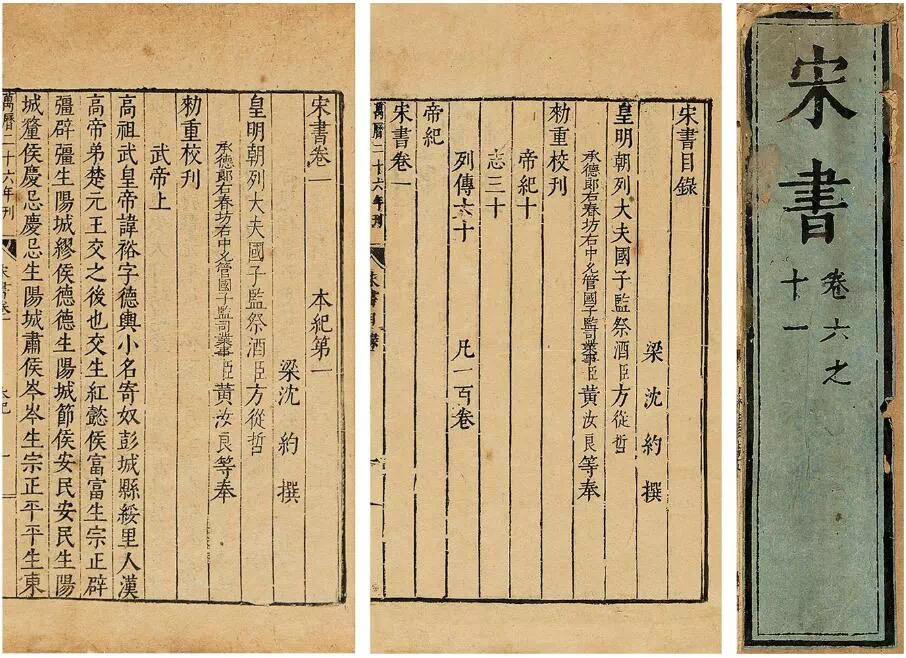 宋書
卷六之
十一
宋書目錄
梁沈約撰
皇明朝列大夫國子監祭酒臣方從哲
承德郎右春坊右中允管國子監司業事臣黃汝良等奉
勅重校刊
帝紀十
志三十
列傳六十 凡一百卷
帝紀
宋書卷一
萬曆二十六年刊
宋書卷一 本紀第一
梁沈約撰
皇明朝列大夫國子監祭酒臣方從哲
承德郎右春坊右中允管國子監司業事臣黃汝良等奉
勅重校刊
武帝上
高祖武皇帝諱裕字德輿小名寄奴彭城縣綏里人漢
高帝弟楚元王交之後也交生紅懿侯富富生宗正辟
彊辟彊生陽城繆侯德德生陽城節侯安民安民生陽
城釐侯慶忌慶忌生陽城肅侯岑岑生宗正平平生東
萬曆二十六年刊
宋書卷一